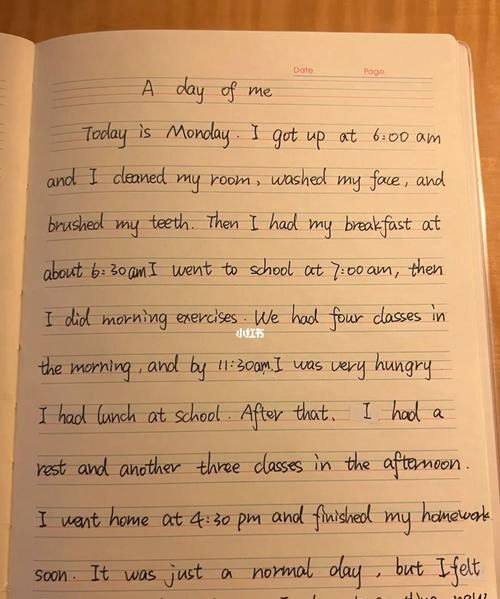 Date. Page.
A day of me
Today is Monday. I got up at 6:00 am
and I cleaned my room, washed my face, and
brushed my teeth. Then I had my breakfast at
about 6:30am I went to school at 7:00 am, then
I did morning exercises. We had four classes in
小红书
the morning, and by 11:30am. I was very hungry
I had lunch at school. After that, I had a
rest and another three classes in the afternoon.
I went home at 4:30 pm and finished my homework
soon. It was just a normal day, but I felt